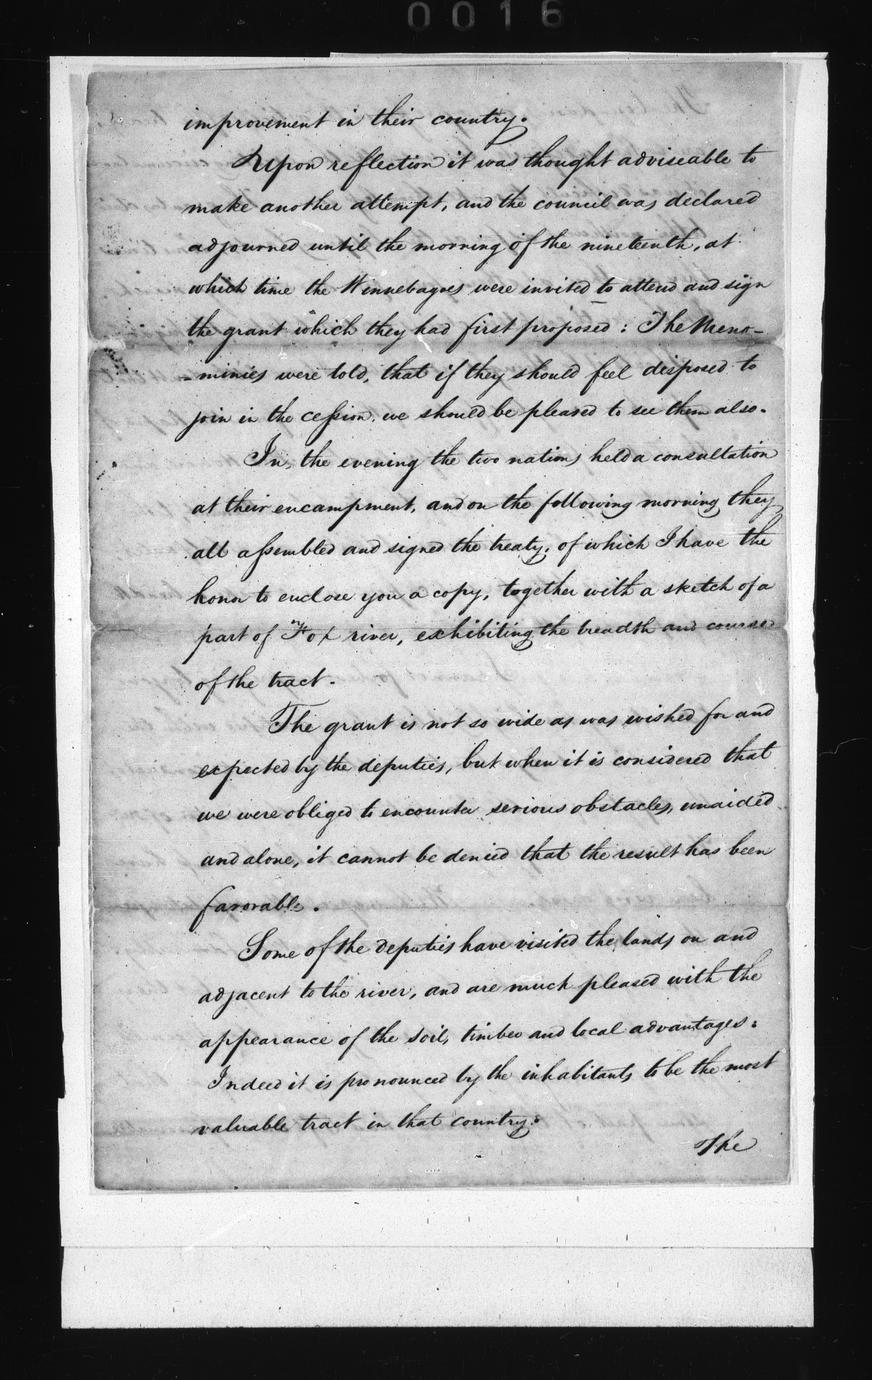 0016
improvement in their country.
Upon reflection it was thought adviseable to
make another attempt, and the council was declared
adjourned until the morning of the nineteenth, at
which time the Winnebagoes were invited to attend and sign
the grant which they had first proposed: The Meno-
-minies were told, that if they should feel disposed to
join in the cession, we should be pleased to see them also.
In, the evening the two nations held a consultation
at their encampment, and on the following morning they
all assembled and signed the treaty, of which I have the
honor to enclose you a copy, together with a sketch of a
part of Fox river, exhibiting the breadth and course
of the tract.
The grant is not so wide as was wished for and
expected by the deputies, but when it is considered that
we were obliged to encounter serious obstacles, unaided
and alone, it cannot be denied that the result has been
favorable.
Some of the deputies have visited the lands on and
adjacent to the river, and are much pleased with the
appearance of the soil, timber and local advantages:
Indeed it is pronounced by the inhabitants to be the most
valuable tract in that country:
The